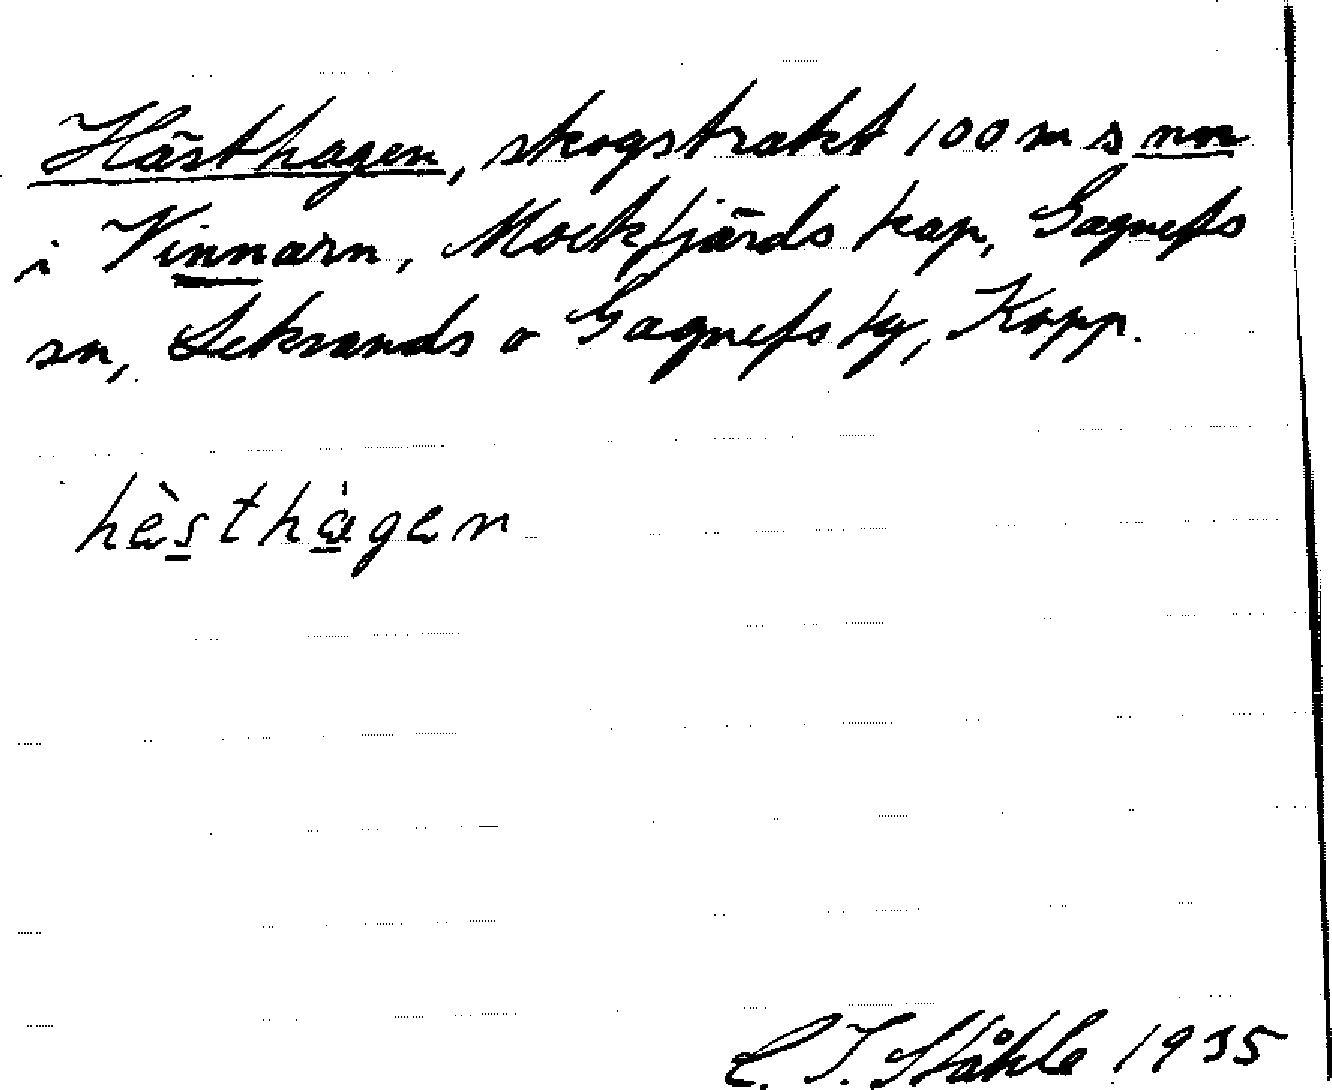 Hästhagen, skogstrakt 100 m s nnn
i Vinnarn, Mockfjärds kap, Gagnefs
sn, Leksands o Gagnefs tg, Kopp.
hèsthàgen
C. I. Ståhle 1935